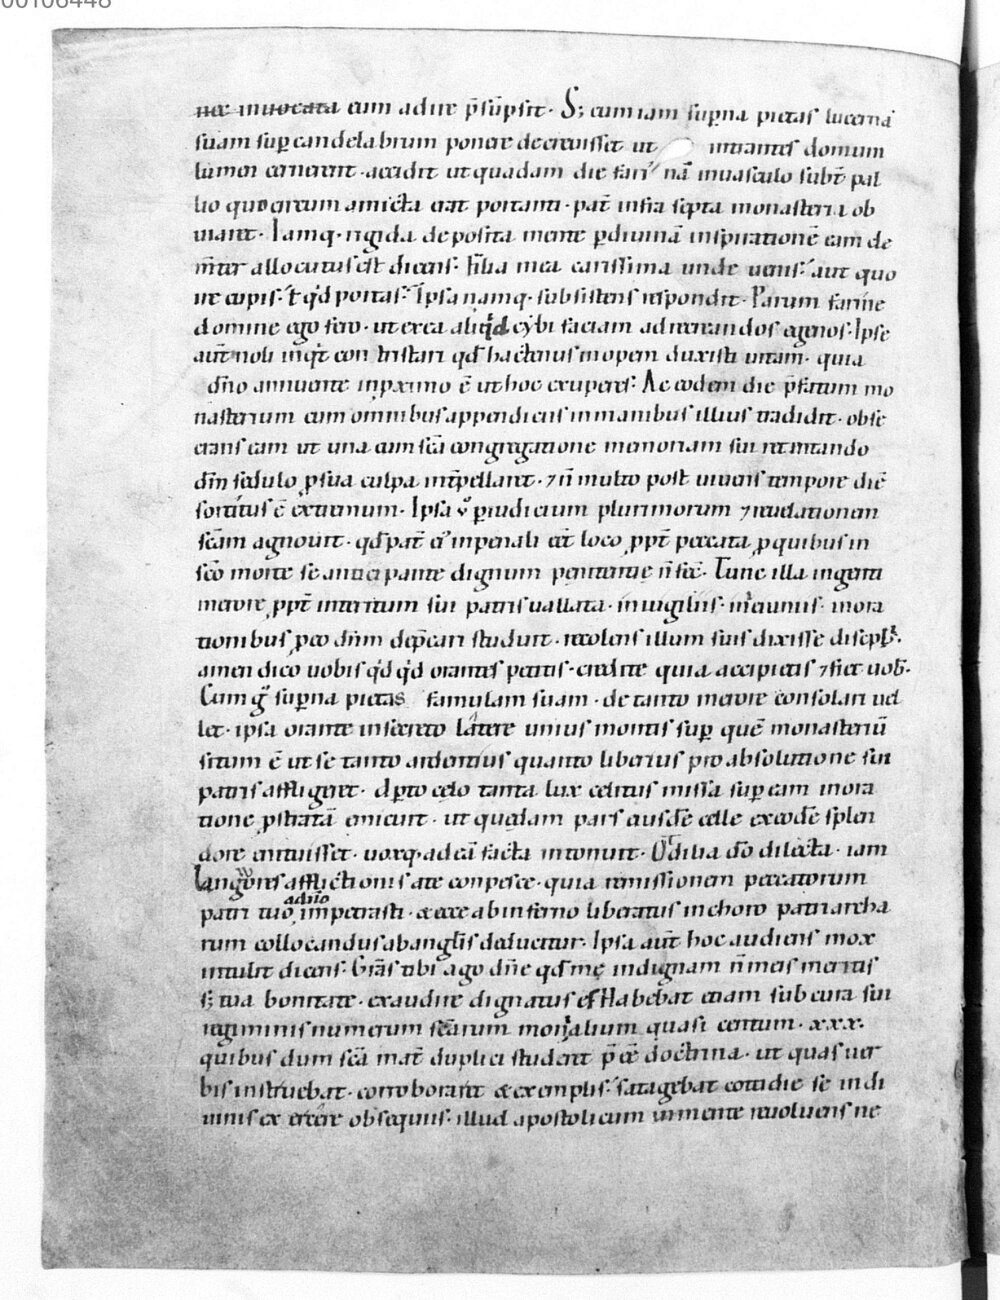 00106448
nec inuocata eum adire p̄sūpsit. S; cum iam sup̱na pietas lucernā
suam sup̱ candelabrum ponere decreuisset ut intrantes domum
lumen cernerent. accidit ut quadam die farinā in uasculo subt̄ pal
lio quo circum amicta erat portanti. pat̄ infra septa monasteria ob
uiaret. Iamq. rigida deposita mente p̱ diuinā inspirationē eam de
m̄ter allocutus est dicens. Filia mea carissima unde uenis. aut quo
ire cupis. t̄ qd̄ portas. Ipsa namq. subsistens respondit. Parum farine
domine ego fero. ut ex ea aliqd̄ cybi faciam ad recreandos egenos. Ipse
aut̄ noli inqt̄ contristari qd̄ hactenus inopem duxisti uitam. quia
dn̄o annuente in ꝓximo ē ut hoc exuperes. Ac eodem die p̄fatum mo
nasterium cum omnibus appendiciis in manibus illius tradidit. obse
crans eam ut una cum sc̄a congregatione memoriam sui retinendo
dn̄m sedulo ꝓ sua culpa int̄pellaret. ⁊ n̄ multo post uiuens tempore diē
sortitus ē extremum. Ipsa v̊ p̱ iudicium plurimorum ⁊ reuelationem
sc̄am agnouit. qd̄ pat̄ ei᾽ in penali eēt loco ꝓpt̄ peccata ꝓ quibus in
sc̄o morte se anticipante dignum penitentie n̄ fec̄. Tunc illa ingenti
merore ꝓpt̄ interitum sui patris uallata. in uigiliis. in ieiuniis. in ora
tionibus ꝓ eo dn̄m dep̄cari studuit. recolens illum suis dixisse discipl̄is.
amen dico uobis qd̄qd̄ orantes petitis. credite quia accipietis ⁊ fiet uob̄.
Cum g̊ sup̱na pietas famulam suam. de tanto merore consolari uel
let. ipsa orante in secreto latere unius montis sup̱ quē monasteriū
situm ē ut se tanto ardentius quanto liberius pro absolutione sui
patris affligeret. ap̱to celo tanta lux celitus missa sup̱ eam in ora
tione ꝓstratā emicuit. ut quedam pars eiusdē celle ex eodē splen
dore enituisset. uoxq. ad eā facta intonuit. Odilia dō dilecta. iam
langores afflictionis a te conpesce. quia remissionem peccatorum
adn̄o
patri tuo impetrasti. & ecce ab inferno liberatus in choro patriarcha
rum collocandus ab angl̄is deducitur. Ipsa aut̄ hoc audiens mox
intulit dicens. Grās tibi ago dn̄e qd̄ me indignam n̄ meis meritis
s; tua bonitate. exaudire dignatus es. Habebat etiam sub cura sui
regiminis numerum sc̄arum monialium quasi centum. xxx.
quibus dum sc̄a mat̄ duplici studeret p̄eē doctrina. ut quas uer
bis instruebat. corroboraret & exemplis. satagebat cottidie se in di
uinis exercere obsequiis. illud apostolicum in mente reuoluens ne